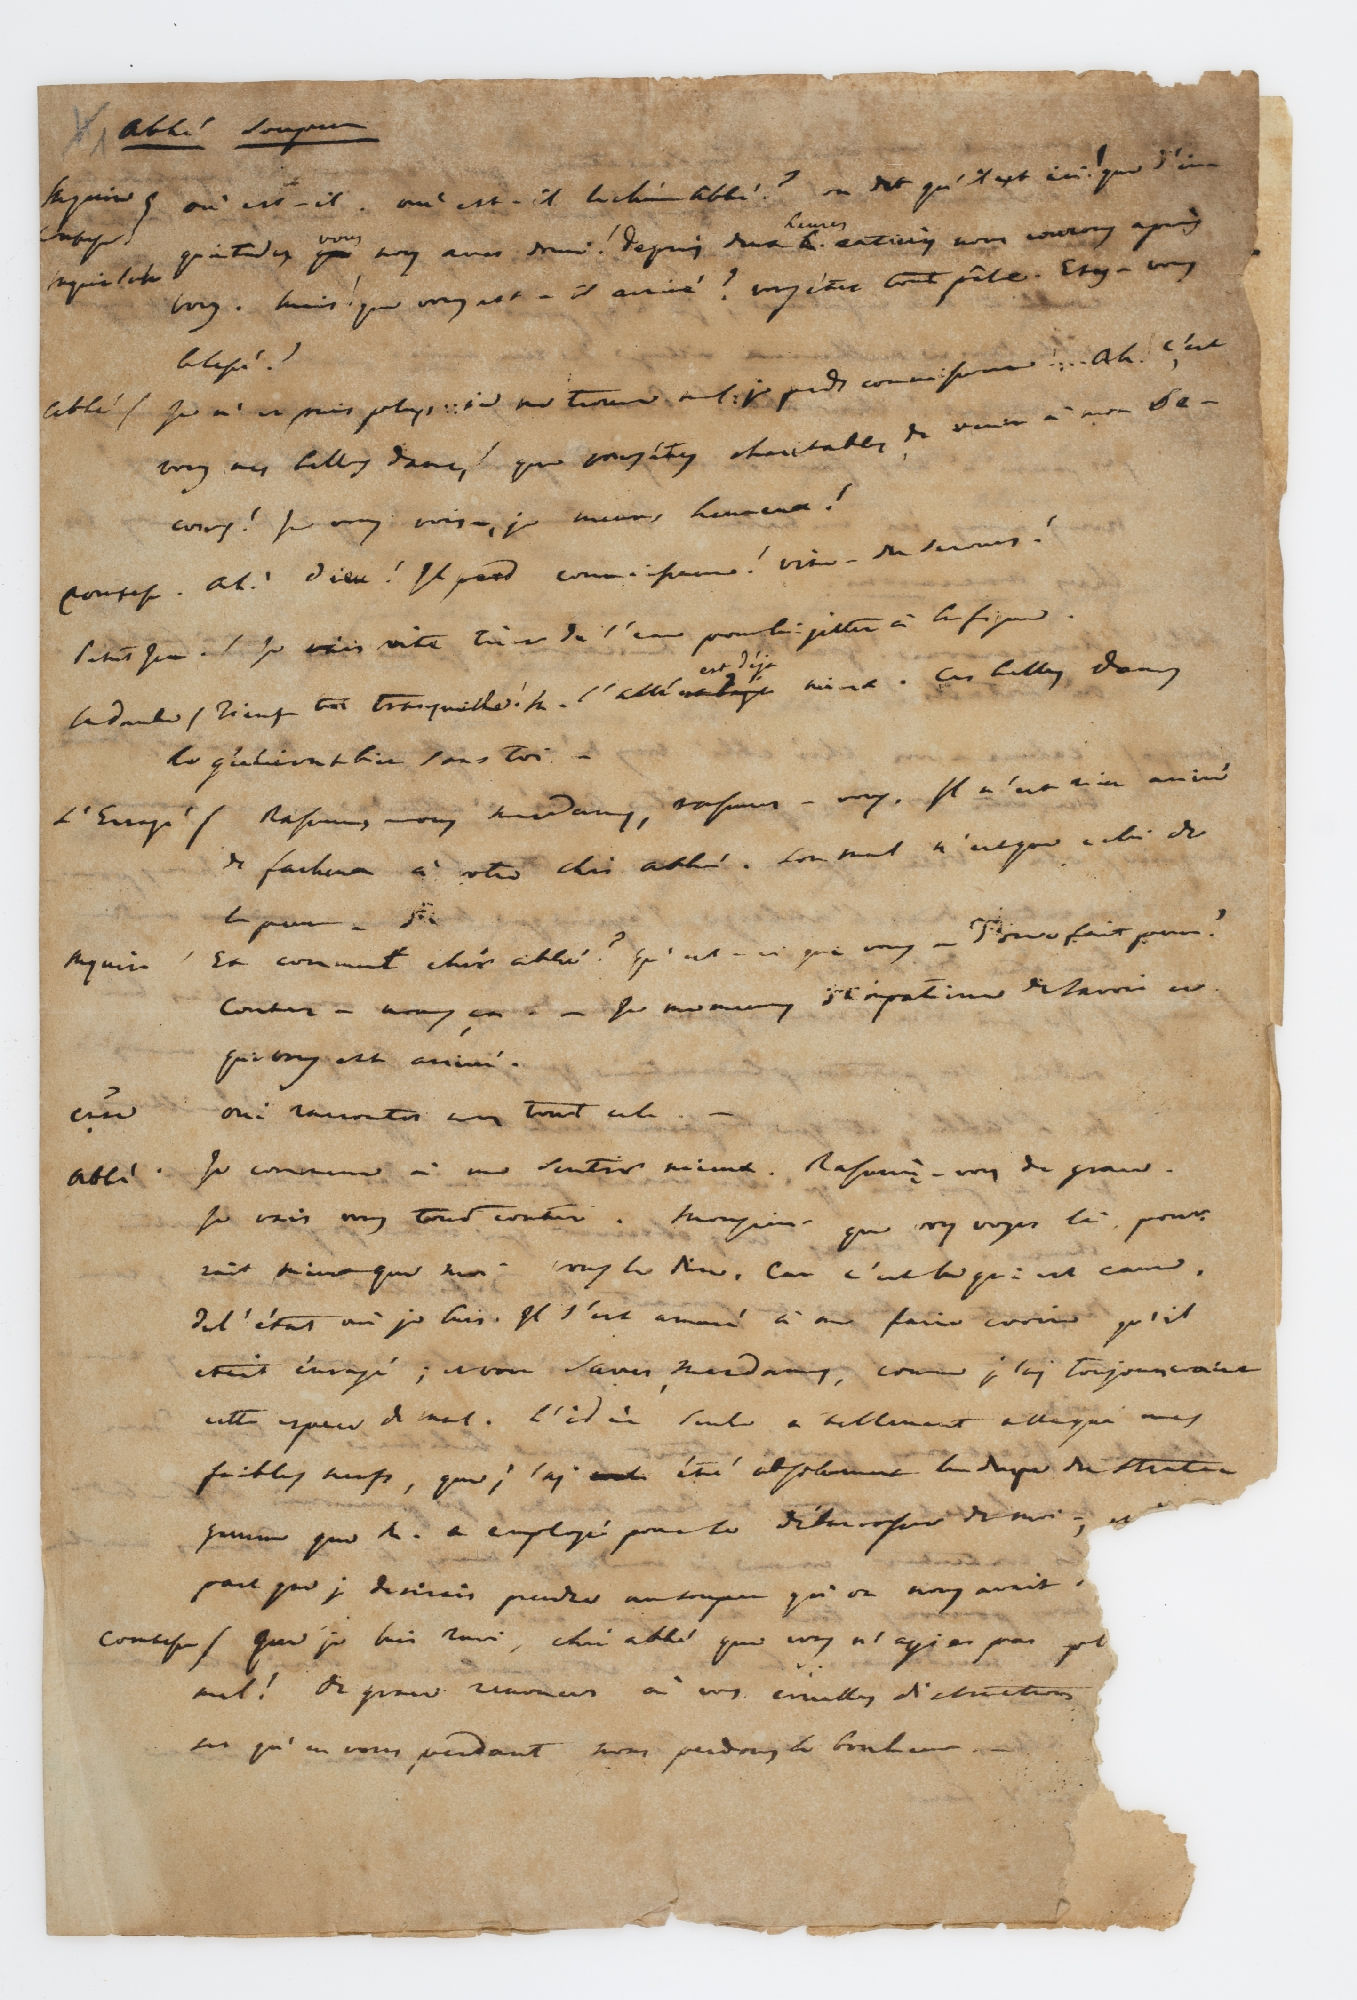 abbé Soupeur
Marquise où est-il. où est-il le cher abbé? on dit qu'il est ici! que d'in
Comtesse quiétudes vous nous avez donné! depuis deux heures entières nous courons après
vous. mais! que vous est-il arrivé? vous êtes tout pâle. Etes-vous
blessé?
abbé Je n'en puis plus... je me trouve mal: je perds connoissance!... Ah! c'est
vous mes belles dames! que vous êtes charitables de venir à mon se-
cours! Je vous vois, je meurs heureux!
Comtesse. Ah! Dieu! Il perd connoissance! vite du secours!
Petit Jean. Je vais vite tirer de l'eau pour lui jetter à la figure.
tranquille. l'abbé est déjà mieux. Ces belles dames
le guériront bien sans toi -
L'Enragé Rassurez vous mesdames, rassurez-vous. Il n'est rien arrivé
de facheux à votre cher abbé. Son mal n'est que celui de
la peur.
Marquise Et comment cher abbé? qu'est-ce qui vous a donc fait peur?
Contez-nous ça. - Je me meurs d'impatience de savoir ce
qui vous est arrivé.
oui racontez nous tout cela. -
abbé. Je commence à me sentir mieux. Rassurez-vous de grace.
Je vais vous tout conter. Monsieur que vous voyez là, pour
rait mieux que moi vous le dire. Car c'est lui qui est cause,
de l'état où je suis. Il s'est amusé à me faire croire qu'il
etait enragé; et vous savez, mesdames, comme j'ai toujours craint
cette espece de mal. L'idée seule a tellement attaqué mes
faibles nerfs, que j'ai été absolument la dupe du strata
gemme que M. a employé pour se débarrasser de moi, et
part que je desirais prendre au souper qu'on nous avait
Comtesse que je suis ravi, cher abbé que vous n'ayiez pas
mal! De grace renoncez à vos cruelles distractions
qu'en vous perdant nous perdons le bonheur -